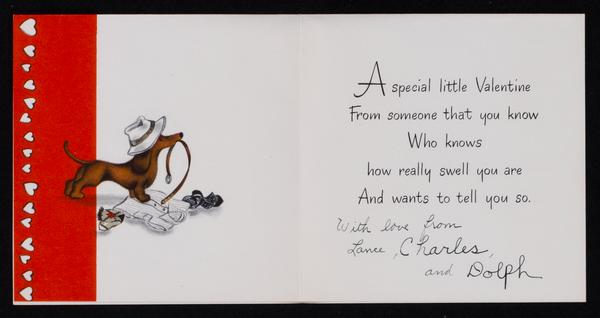 A special little Valentine
From someone that you know
Who knows
how really swell you are
And wants to tell you so.
With love from
Lance, Charles,
and Dolph